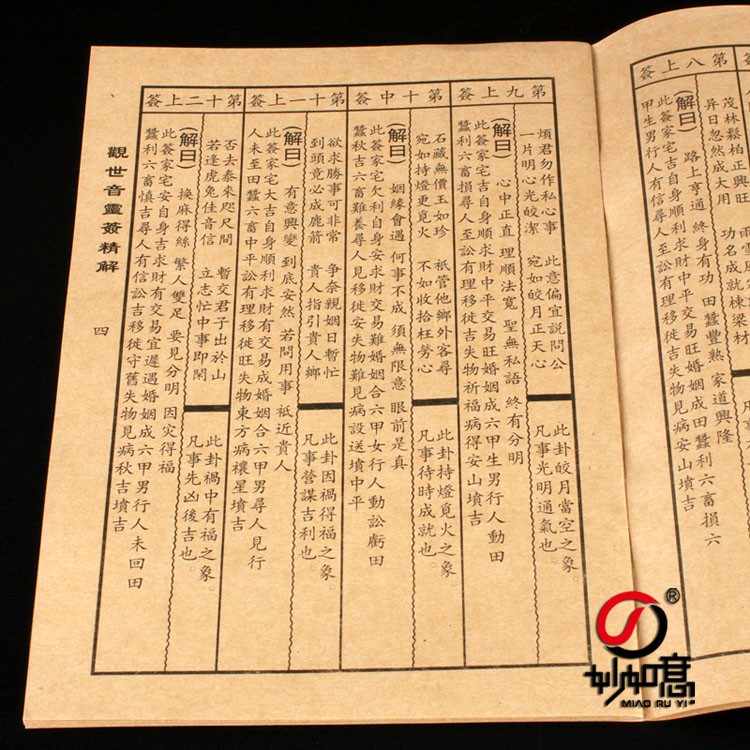 第八上簽
茂林鬆柏正興旺 雨雪風
異日忽然成大用 功名成就棟梁材
(解曰) 路上亨通 終身有功 田蠶豐熟 家道興隆
此簽家宅吉自身順利求財中平交易旺婚姻成田蠶利六畜損六
甲生男行人有信尋人至訟有理移徙吉失物見病安山墳吉
第九上簽
煩君勿作私心事 此意偏宜説問公
一片明心光皎潔 宛如皎月正天心
此卦皎月當空之象。
凡事光明通氣也。
(解曰) 心中正直 理順法寬 聖無私語 終有分明
此簽家宅吉自身順利求財中平交易旺婚姻成六甲生男行人動田
蠶利六畜損尋人至訟有理移徙吉失物祈福病得安山墳吉
第十中簽
石藏無價玉如珍 衹管他鄉外客尋
宛如持燈更覓火 不如收拾枉勞心
此卦持燈覓火之象。
凡事待時成就也。
(解曰) 姻緣會遇 何事不成 須無限意 眼前是真
此簽家宅欠利自身安求財交易難婚姻合六甲女行人動訟虧田
蠶秋吉六畜難養尋人見移徙安失物難見病設送墳中平
第十一上簽
欲求勝事可非常 爭奈親姻日暫忙
到頭竟必成鹿箭 貴人指引貴人鄉
此卦因禍得福之象。
凡事營謀吉利也。
(解曰) 有意興變 到底安然 若問用事 衹近貴人
此簽家宅大吉自身順利求財有交易成婚姻合六甲男尋人見行
人未至田蠶六畜中平訟有理移徙旺失物東方病禳星墳吉
第十二上簽
否去泰來咫尺間 暫交君子出於山
若逢虎兔佳音信 立志忙中事即閑
此卦禍中有福之象。
凡事先凶後吉也。
(解曰) 換麻得絲 繁人雙足 要見分明 因灾得福
此簽家宅安自身吉求財有交易宜遲遇婚姻成六甲男行人未回田
蠶利六畜慎吉尋人有信訟吉移徙守舊失物見病秋吉墳吉
觀世音靈簽精解
四
妙如意
®
MIAO RU YI